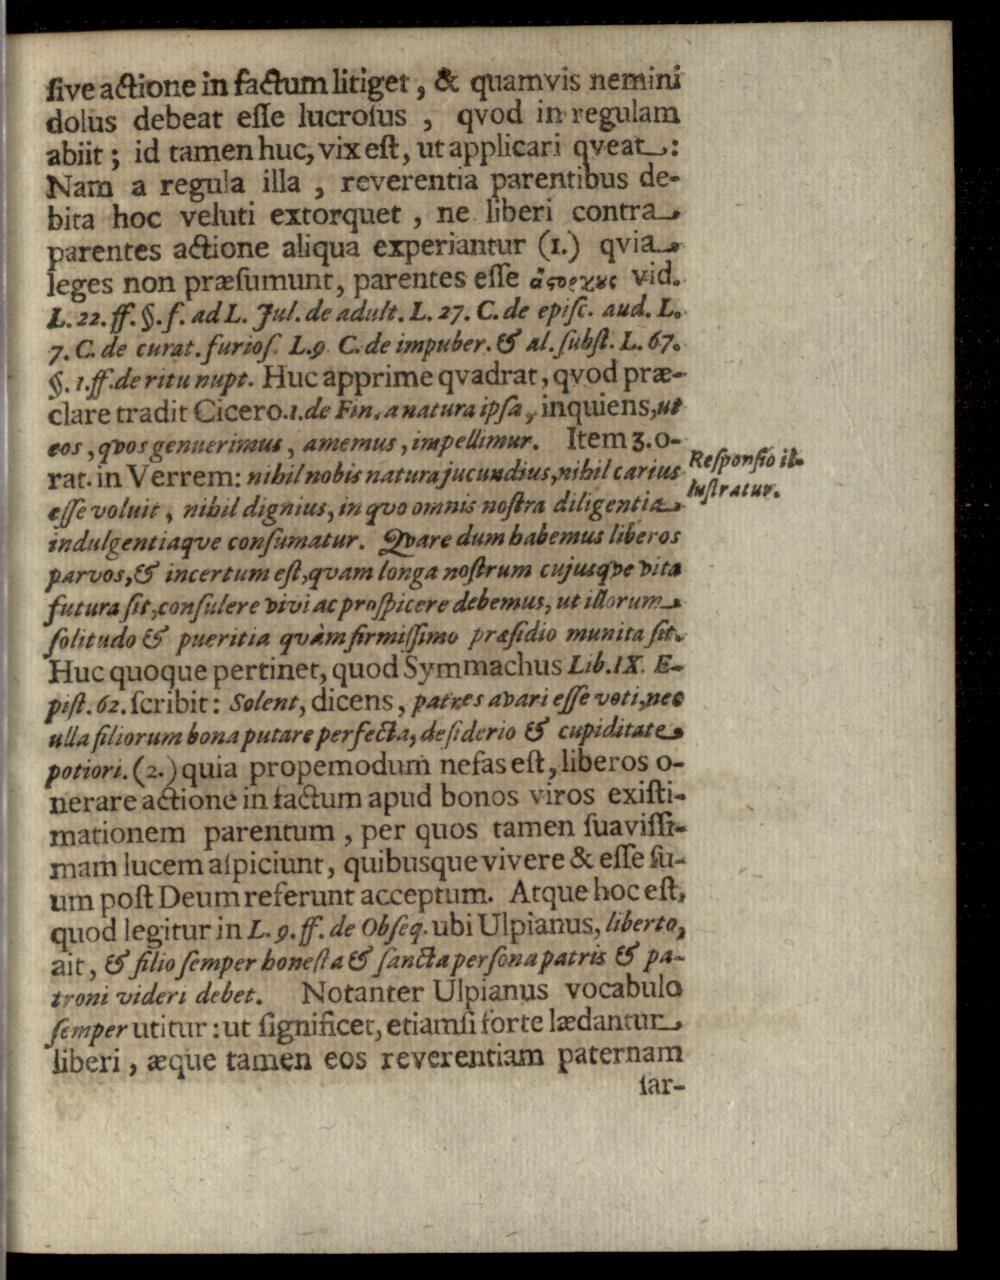 sive actione in factum litiget, & quamvis nemini
dolus debeat esse lucrosus, qvod in regulam
abiit; id tamen huc, vix est, ut applicari qveat:
Nam a regula illa, reverentia parentibus de-
bita hoc veluti extorquet, ne liberi contra
parentes actione aliqua experiantur (1.) qvia
leges non præsumunt, parentes esse ἀςόργȣς vid.
L. 22. ff. §. f. ad L. Jul. de adult. L. 27. C. de episc. aud. L.
7. C. de curat. furios. L. 9 C. de impuber. & al. subst. L. 67.
§. 1. ff. de ritu nupt. Huc apprime qvadrat, qvod præ-
clare tradit Cicero. 1. de Fin. a natura ipsa, inquiens, ut
eos, qvos genuerimus, amemus, impellimur. Item 3. o-
rat. in Verrem: nihil nobis natura jucundius, nihil carius
esse voluit, nihil dignius, in quo omnis nostra diligentia
indulgentiaqve consumatur. Qvare dum habemus liberos
parvos, & incertum est, qvam longa nostrum cujusqve vita
futura sit, consulere vivi ac prospicere debemus, ut illorum
solitudo & pueritia quàm firmissimo præsidio munita sit.
Responsio il-
lustratur.
Huc quoque pertinet, quod Symmachus Lib. IX. E-
pist. 62. scribit: Solent, dicens, patres avari esse voti, nec
ulla filiorum bona putare perfecta, desiderio & cupiditate
potiori. (2.) quia propemodum nefas est, liberos o-
nerare actione in factum apud bonos viros existi-
mationem parentum, per quos tamen suavissi-
mam lucem aspiciunt, quibusque vivere & esse su-
um post Deum referunt acceptum. Atque hoc est,
quod legitur in L. 9. ff. de Obseq. ubi Ulpianus, liberto,
ait, & filio semper honesta & sancta persona patris & pa-
troni videri debet. Notanter Ulpianus vocabulo
semper utitur: ut significet, etiamsi forte lædantur
liberi, æque tamen eos reverentiam paternam
sar-